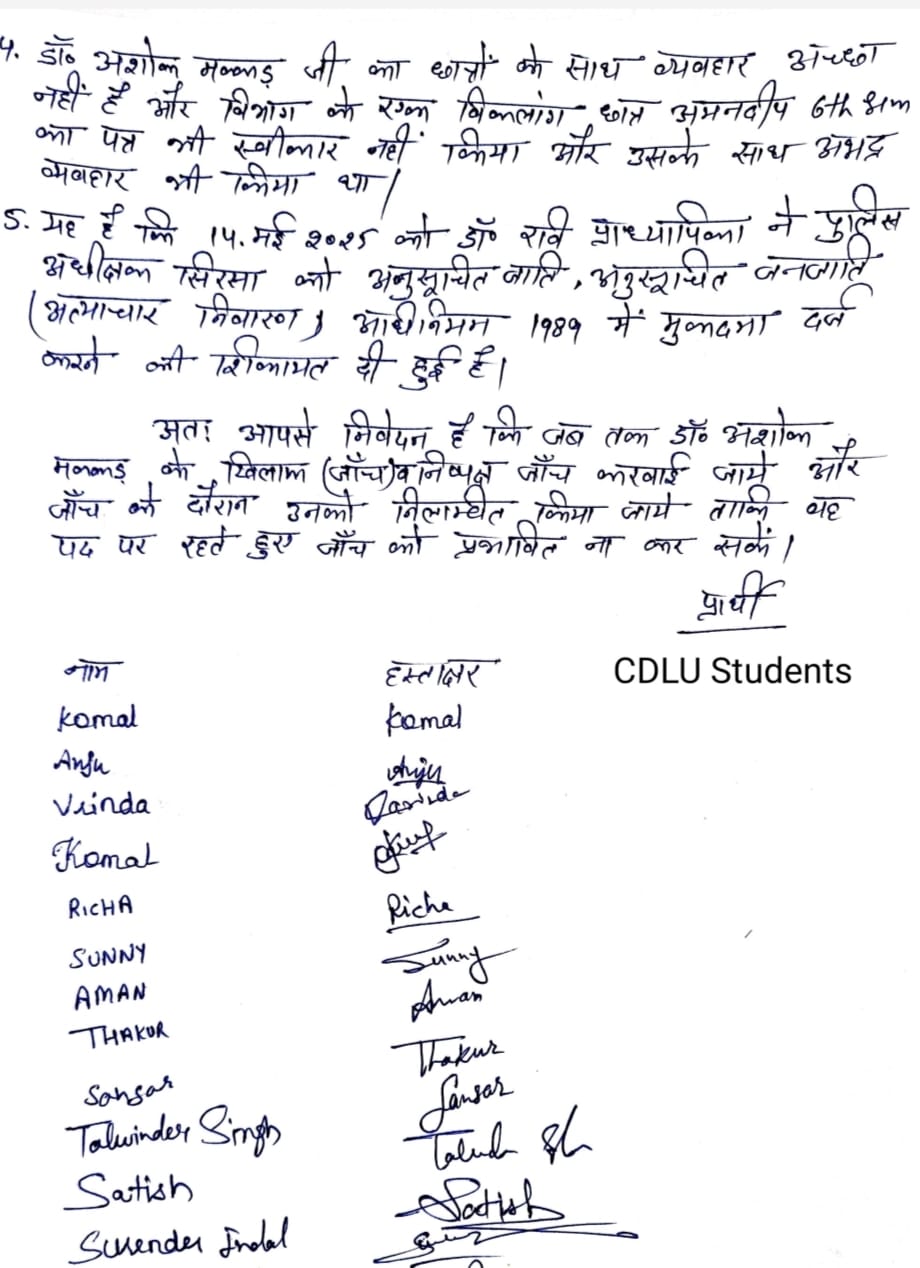 4. डॉ० अशोक मक्कड़ जी का छात्रों के साथ व्यवहार अच्छा
नहीं है और विभाग के एक विकलांग छात्र अमनदीप 6th Sem
का पत्र भी स्वीकार नहीं किया और उसके साथ अभद्र
व्यवहार भी किया था।
5. यह है कि 14. मई 2025 को डॉ० रवि प्राध्यापिका ने पुलिस
अधीक्षक सिरसा को अनुसूचित जाति, अनुसूचित जनजाति
(अत्याचार निवारण) अधिनियम 1989 में मुकदमा दर्ज
करने की शिकायत दी हुई है।
अतः आपसे निवेदन है कि जब तक डॉ० अशोक
मक्कड़ के खिलाफ (जाँच) व निष्पक्ष जाँच करवाई जाये और
जाँच के दौरान उनको निलम्बित किया जाये ताकि वह
पद पर रहते हुए जाँच को प्रभावित ना कर सकें।
प्रार्थी
नाम हस्ताक्षर CDLU Students
Komal Komal
Anju Anju
Vrinda
Komal
RICHA Richa
SUNNY Sunny
AMAN Aman
THAKUR Thakur
Sansar Sansar
Talwinder Singh
Satish Satish
Surender Jindal